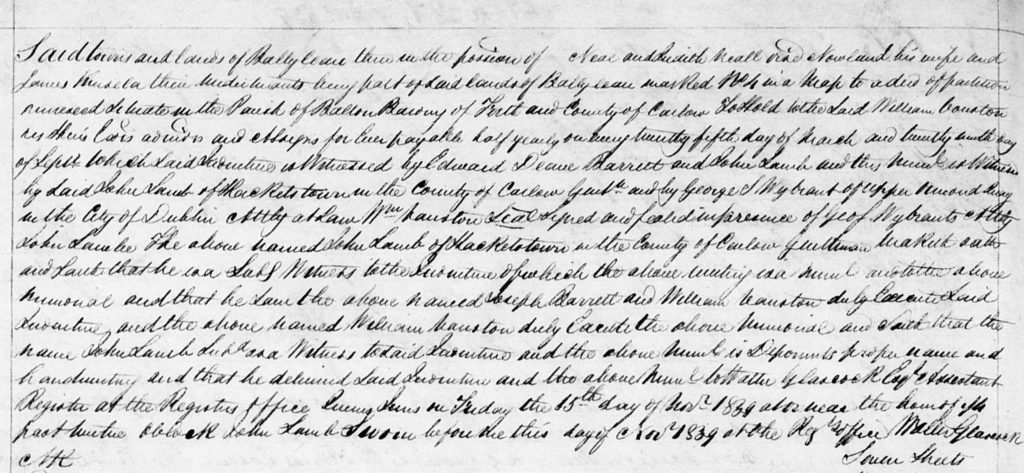 Said towns and lands of Ballylean then in the possion of Neal and Judith Neall orwe Nowland his wife and
James their undertenants being part of said lands of Ballylean marked No 4 in a Map to a deed of partition
annexed Situate in the Parish of Ballon Barony of Forth and County of Carlow To Hold to the Said William Vanston
his Heirs Exors admors and Assigns for Ever payable half yearly on every twenty fifth day of March and twenty ninth day
of Septr Which Said Indenture is Witnessed by Edward Deane Barrett and John Lamb and this Meml is Witnessed
by Said John Lamb of Hacketstown in the County of Carlow Gentn and by George S Wybrant of upper Ormond Quay
in the City of Dublin Atty at Law Wm Vanston Seal Signed and Sealed in presence of Geo S Wybrants Atty
John Lambe The above named John Lamb of Hacketstown in the County of Carlow Gentleman maketh oath
and Saith that he is a Subg Witness to the Indenture of which the above writing is a Meml and to the above
Memorial and that he Saw the above named Joseph Barrett and William Vanston duly Execute Said
Indenture, and the above named William Vanston duly Execute the above Memorial and Saith that the
name John Lamb Subd as a Witness to said Indenture and the above Meml is Deponents proper name and
handwriting and that he delivered Said Indenture and the above Meml to Walter Glascock Esqr Assistant
Register at the Registrs Office Inns on Friday the 15th day of Novr 1839 at or near the hour of
past twelve O Clock John Lamb Sworn before me this day of Novr 1839 at the Regr office Walter Glascock
Seven Sheets